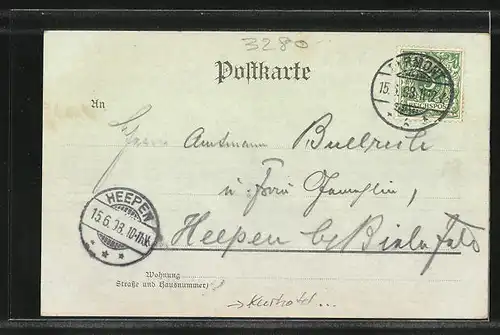 3280
Postkarte
PYRMONT
15.6.98
REICHSPOST
An
Herrn Amtmann Bullrich
u. Frau Gemahlin,
HEEPEN
15.6.98.10-11.V.
Heepen b/ Bielefeld
Wohnung
Straße und Hausnummer